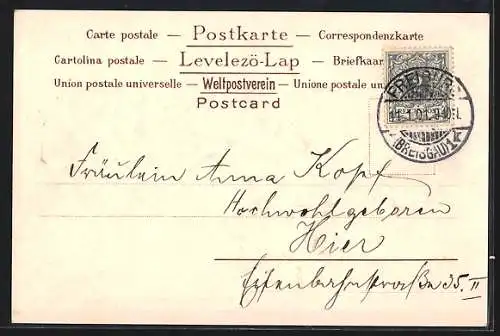 Carte postale — Postkarte — Correspondenzkarte
Cartolina postale — Levelezö-Lap — Briefkaar
Union postale universelle — Weltpostverein — Unione postale un
Postcard
FREIBURG
(BREISGAU)
Fräulein Anna Kopf
Hochwohlgeboren
Hier
Eisenbahnstraße 35. II